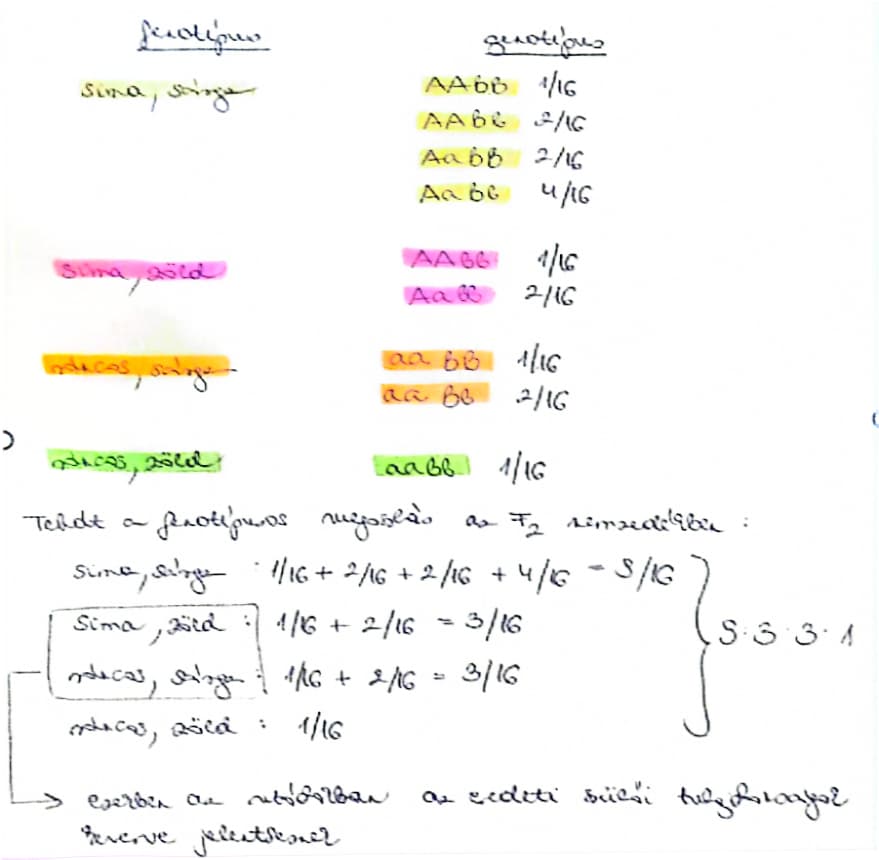 fenotípus genotípus
sima, sárga AABB 1/16
AABb 2/16
AaBB 2/16
AaBb 4/16
sima, zöld AAbb 1/16
Aabb 2/16
ráncos, sárga aa BB 1/16
aa Bb 2/16
ráncos, zöld aabb 1/16
Tehát a fenotípusos megoszlás az F2 nemzedékben :
sima, sárga : 1/16 + 2/16 + 2/16 + 4/16 = 9/16
sima, zöld : 1/16 + 2/16 = 3/16 9:3:3:1
ráncos, sárga : 1/16 + 2/16 = 3/16
ráncos, zöld : 1/16
→ ezekben az utódokban az eredeti szülői tulajdonságok
keverve jelentkeznek